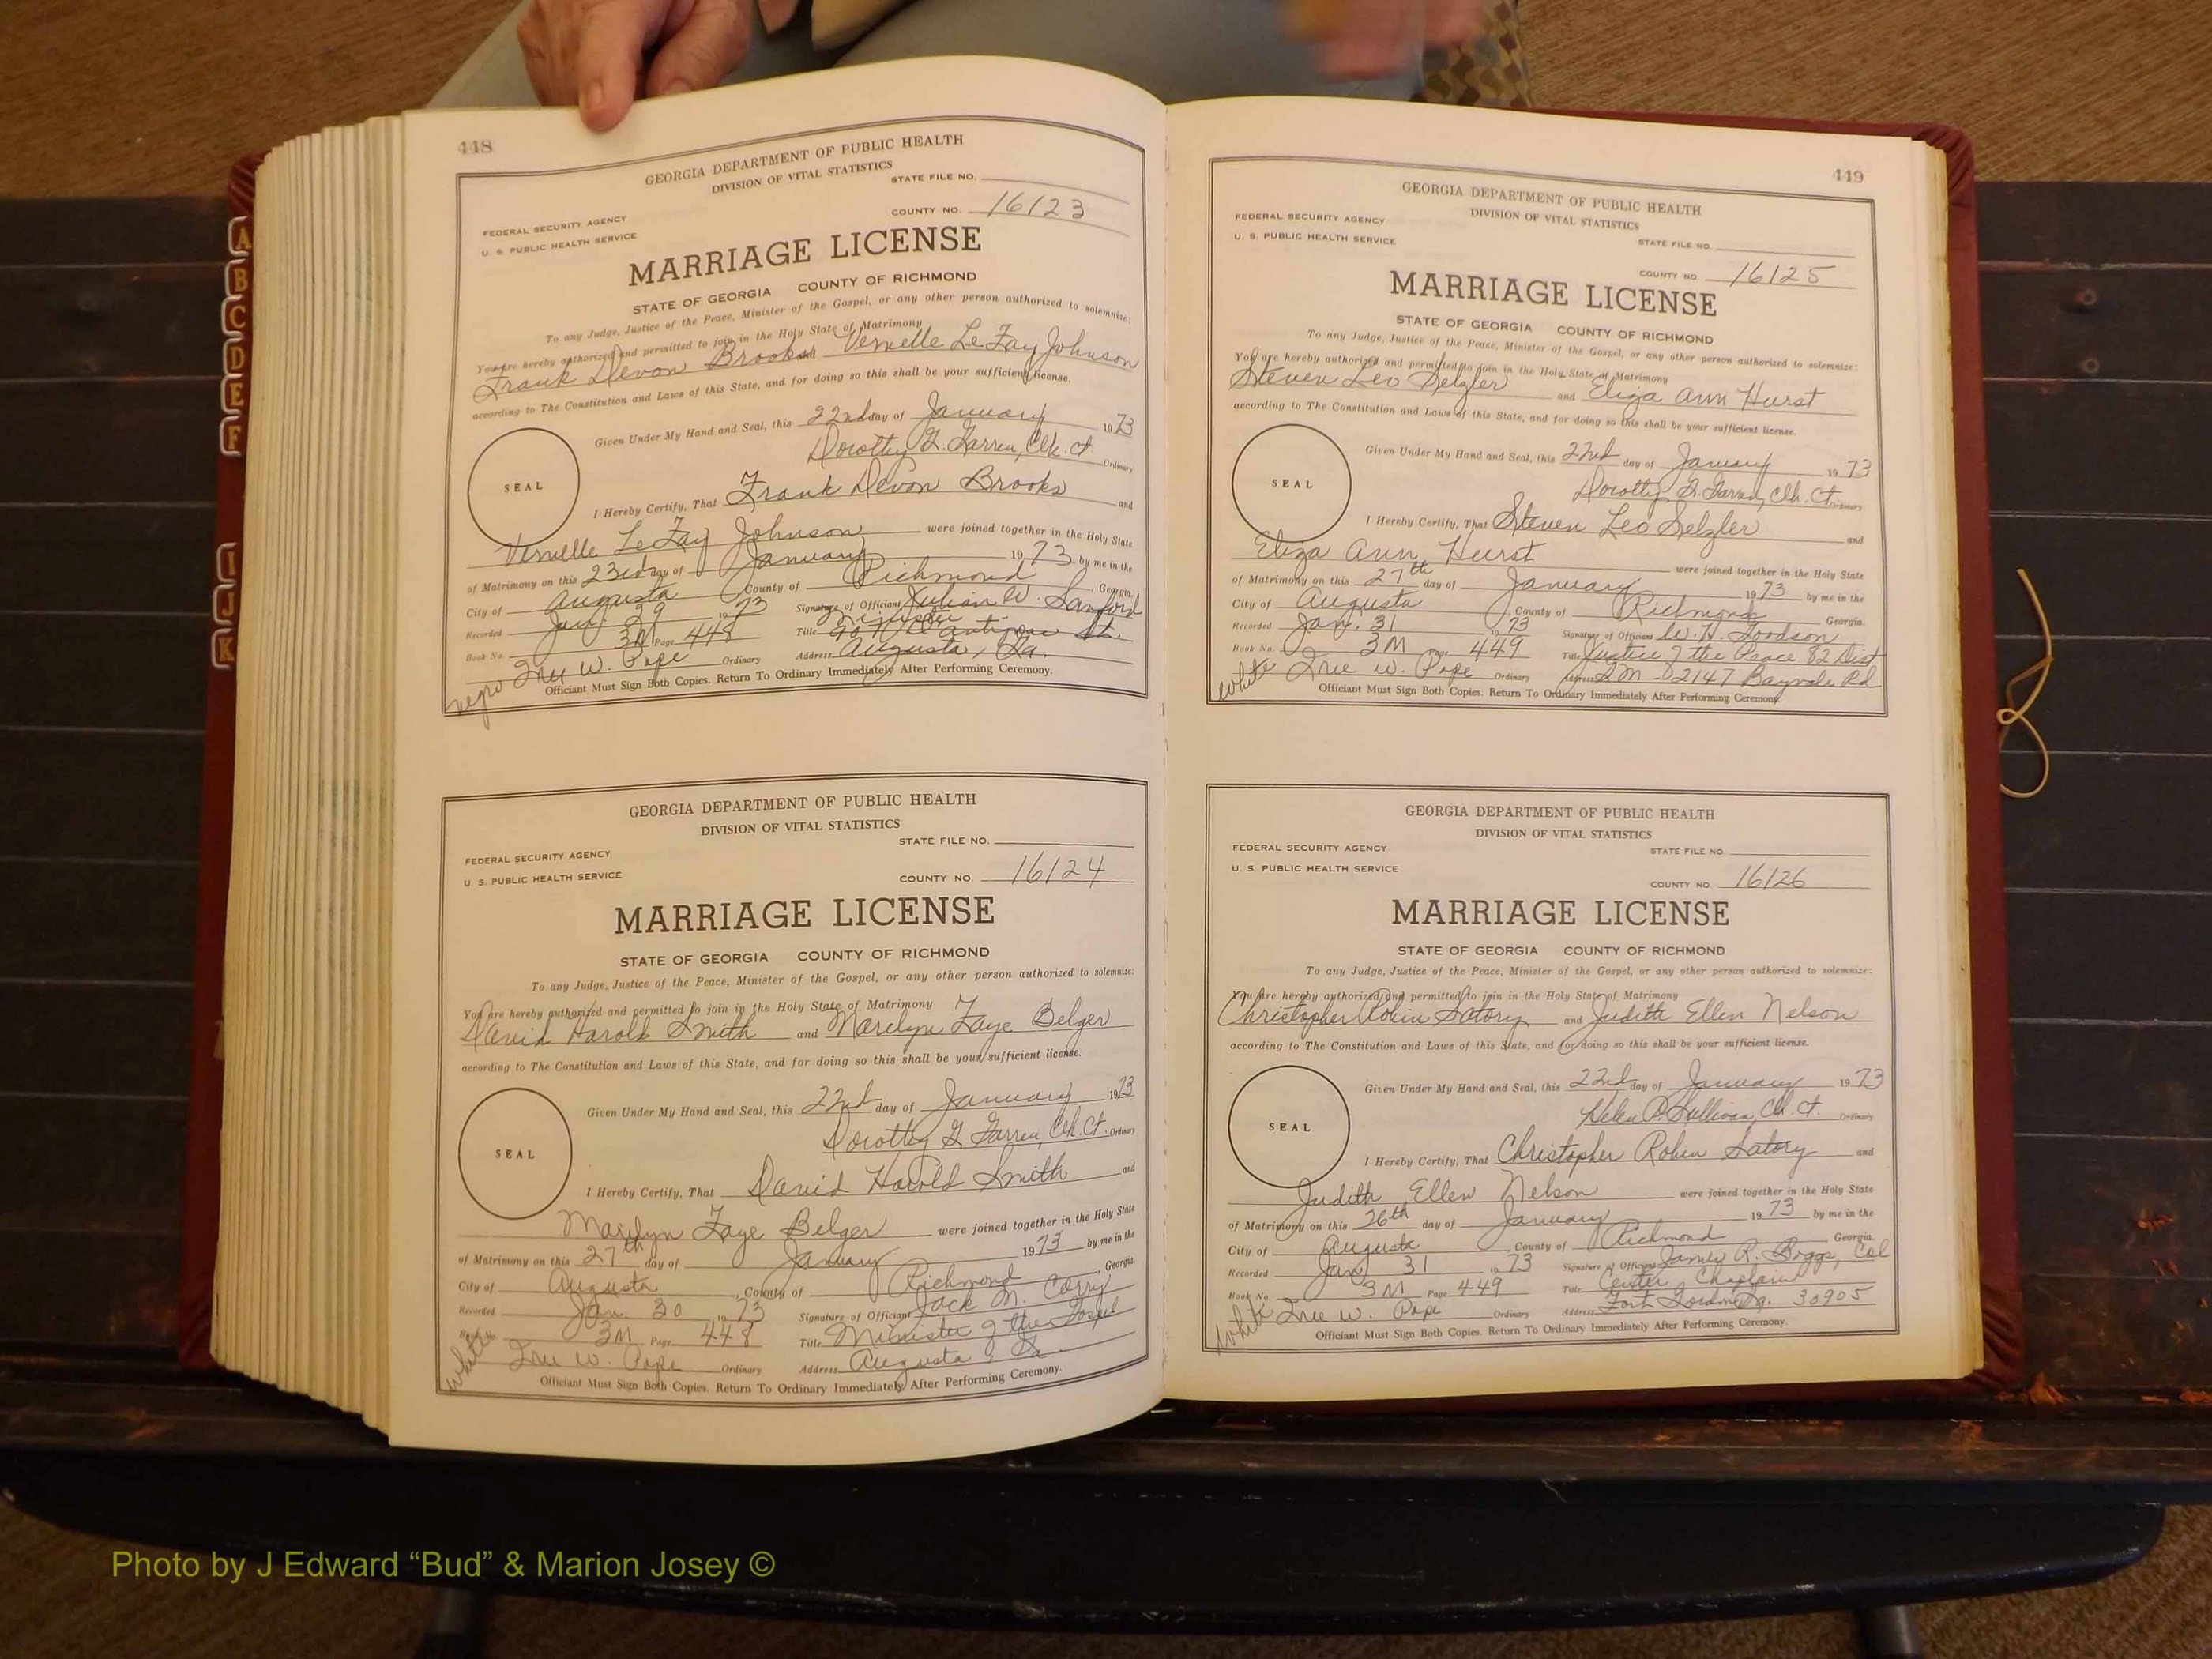 448
GEORGIA DEPARTMENT OF PUBLIC HEALTH
DIVISION OF VITAL STATISTICS
STATE FILE NO.
FEDERAL SECURITY AGENCY
COUNTY NO. 16123
U. S. PUBLIC HEALTH SERVICE
MARRIAGE LICENSE
STATE OF GEORGIA COUNTY OF RICHMOND
To any Judge, Justice of the Peace, Minister of the Gospel, or any other person authorized to solemnize:
You are hereby authorized and permitted to join in the Holy State of Matrimony
Frank Devon Brooks and Vernelle LeFay Johnson
according to The Constitution and Laws of this State, and for doing so this shall be your sufficient license.
Given Under My Hand and Seal, this 22nd day of January 1973
Dorothy G. Farren, Clk. Ct. Ordinary
SEAL
I Hereby Certify, That Frank Devon Brooks and
Vernelle LeFay Johnson were joined together in the Holy State
of Matrimony on this 23rd day of January 1973 by me in the
City of Augusta County of Richmond, Georgia.
Recorded Jan 29 1973 Signature of Officiant Julian W. Sanford
Book No. 3M Page 448 Title Minister
Address Augusta, Ga.
True W. Pope Ordinary
Officiant Must Sign Both Copies. Return To Ordinary Immediately After Performing Ceremony.
negro
GEORGIA DEPARTMENT OF PUBLIC HEALTH
DIVISION OF VITAL STATISTICS
STATE FILE NO.
FEDERAL SECURITY AGENCY
U. S. PUBLIC HEALTH SERVICE
COUNTY NO. 16124
MARRIAGE LICENSE
STATE OF GEORGIA COUNTY OF RICHMOND
To any Judge, Justice of the Peace, Minister of the Gospel, or any other person authorized to solemnize:
You are hereby authorized and permitted to join in the Holy State of Matrimony
David Harold Smith and Marilyn Faye Belger
according to The Constitution and Laws of this State, and for doing so this shall be your sufficient license.
Given Under My Hand and Seal, this 22nd day of January 1973
Dorothy G Farren, Clk. Ct. Ordinary
SEAL
I Hereby Certify, That David Harold Smith and
Marilyn Faye Belger were joined together in the Holy State
of Matrimony on this 27th day of January 1973 by me in the
City of Augusta, County of Richmond, Georgia.
Recorded Jan. 30 1973 Signature of Officiant Jack M. Corry
Book No. 3M Page 448 Title Minister of the Gospel
True W. Pope Ordinary Address Augusta, Ga.
Officiant Must Sign Both Copies. Return To Ordinary Immediately After Performing Ceremony.
white
449
GEORGIA DEPARTMENT OF PUBLIC HEALTH
DIVISION OF VITAL STATISTICS
FEDERAL SECURITY AGENCY
U. S. PUBLIC HEALTH SERVICE
STATE FILE NO.
COUNTY NO. 16125
MARRIAGE LICENSE
STATE OF GEORGIA COUNTY OF RICHMOND
To any Judge, Justice of the Peace, Minister of the Gospel, or any other person authorized to solemnize:
You are hereby authorized and permitted to join in the Holy State of Matrimony
Steven Leo Selzler and Eliza Ann Hurst
according to The Constitution and Laws of this State, and for doing so this shall be your sufficient license.
Given Under My Hand and Seal, this 22nd day of January 1973
Dorothy G. Farren, Clk. Ct. Ordinary
SEAL
I Hereby Certify, That Steven Leo Selzler and
Eliza Ann Hurst were joined together in the Holy State
of Matrimony on this 27th day of January 1973 by me in the
City of Augusta, County of Richmond Georgia.
Recorded Jan. 31 1973 Signature of Officiant W. H. Goodson
Book No. 3M Page 449 Title Justice of the Peace 82 Dist
True W. Pope Ordinary Address G.M - 2147 Bayvale Rd
Officiant Must Sign Both Copies. Return To Ordinary Immediately After Performing Ceremony.
white
GEORGIA DEPARTMENT OF PUBLIC HEALTH
DIVISION OF VITAL STATISTICS
FEDERAL SECURITY AGENCY
STATE FILE NO.
U. S. PUBLIC HEALTH SERVICE
COUNTY NO. 16126
MARRIAGE LICENSE
STATE OF GEORGIA COUNTY OF RICHMOND
To any Judge, Justice of the Peace, Minister of the Gospel, or any other person authorized to solemnize:
You are hereby authorized and permitted to join in the Holy State of Matrimony
Christopher Robin Satory and Judith Ellen Nelson
according to The Constitution and Laws of this State, and for doing so this shall be your sufficient license.
Given Under My Hand and Seal, this 22nd day of January 1973
Helen P. Sullivan, Clk. Ct. Ordinary
SEAL
I Hereby Certify, That Christopher Robin Satory and
Judith Ellen Nelson were joined together in the Holy State
of Matrimony on this 26th day of January 1973 by me in the
City of Augusta, County of Richmond Georgia.
Recorded Jan 31 1973 Signature of Officiant James R. Boggs, Col
Book No. 3M Page 449 Title Center Chaplain
True W. Pope Ordinary Address Fort Gordon, Ga. 30905
Officiant Must Sign Both Copies. Return To Ordinary Immediately After Performing Ceremony.
white
A
B
C
D
E
F
I
J
K
Photo by J Edward “Bud” & Marion Josey ©